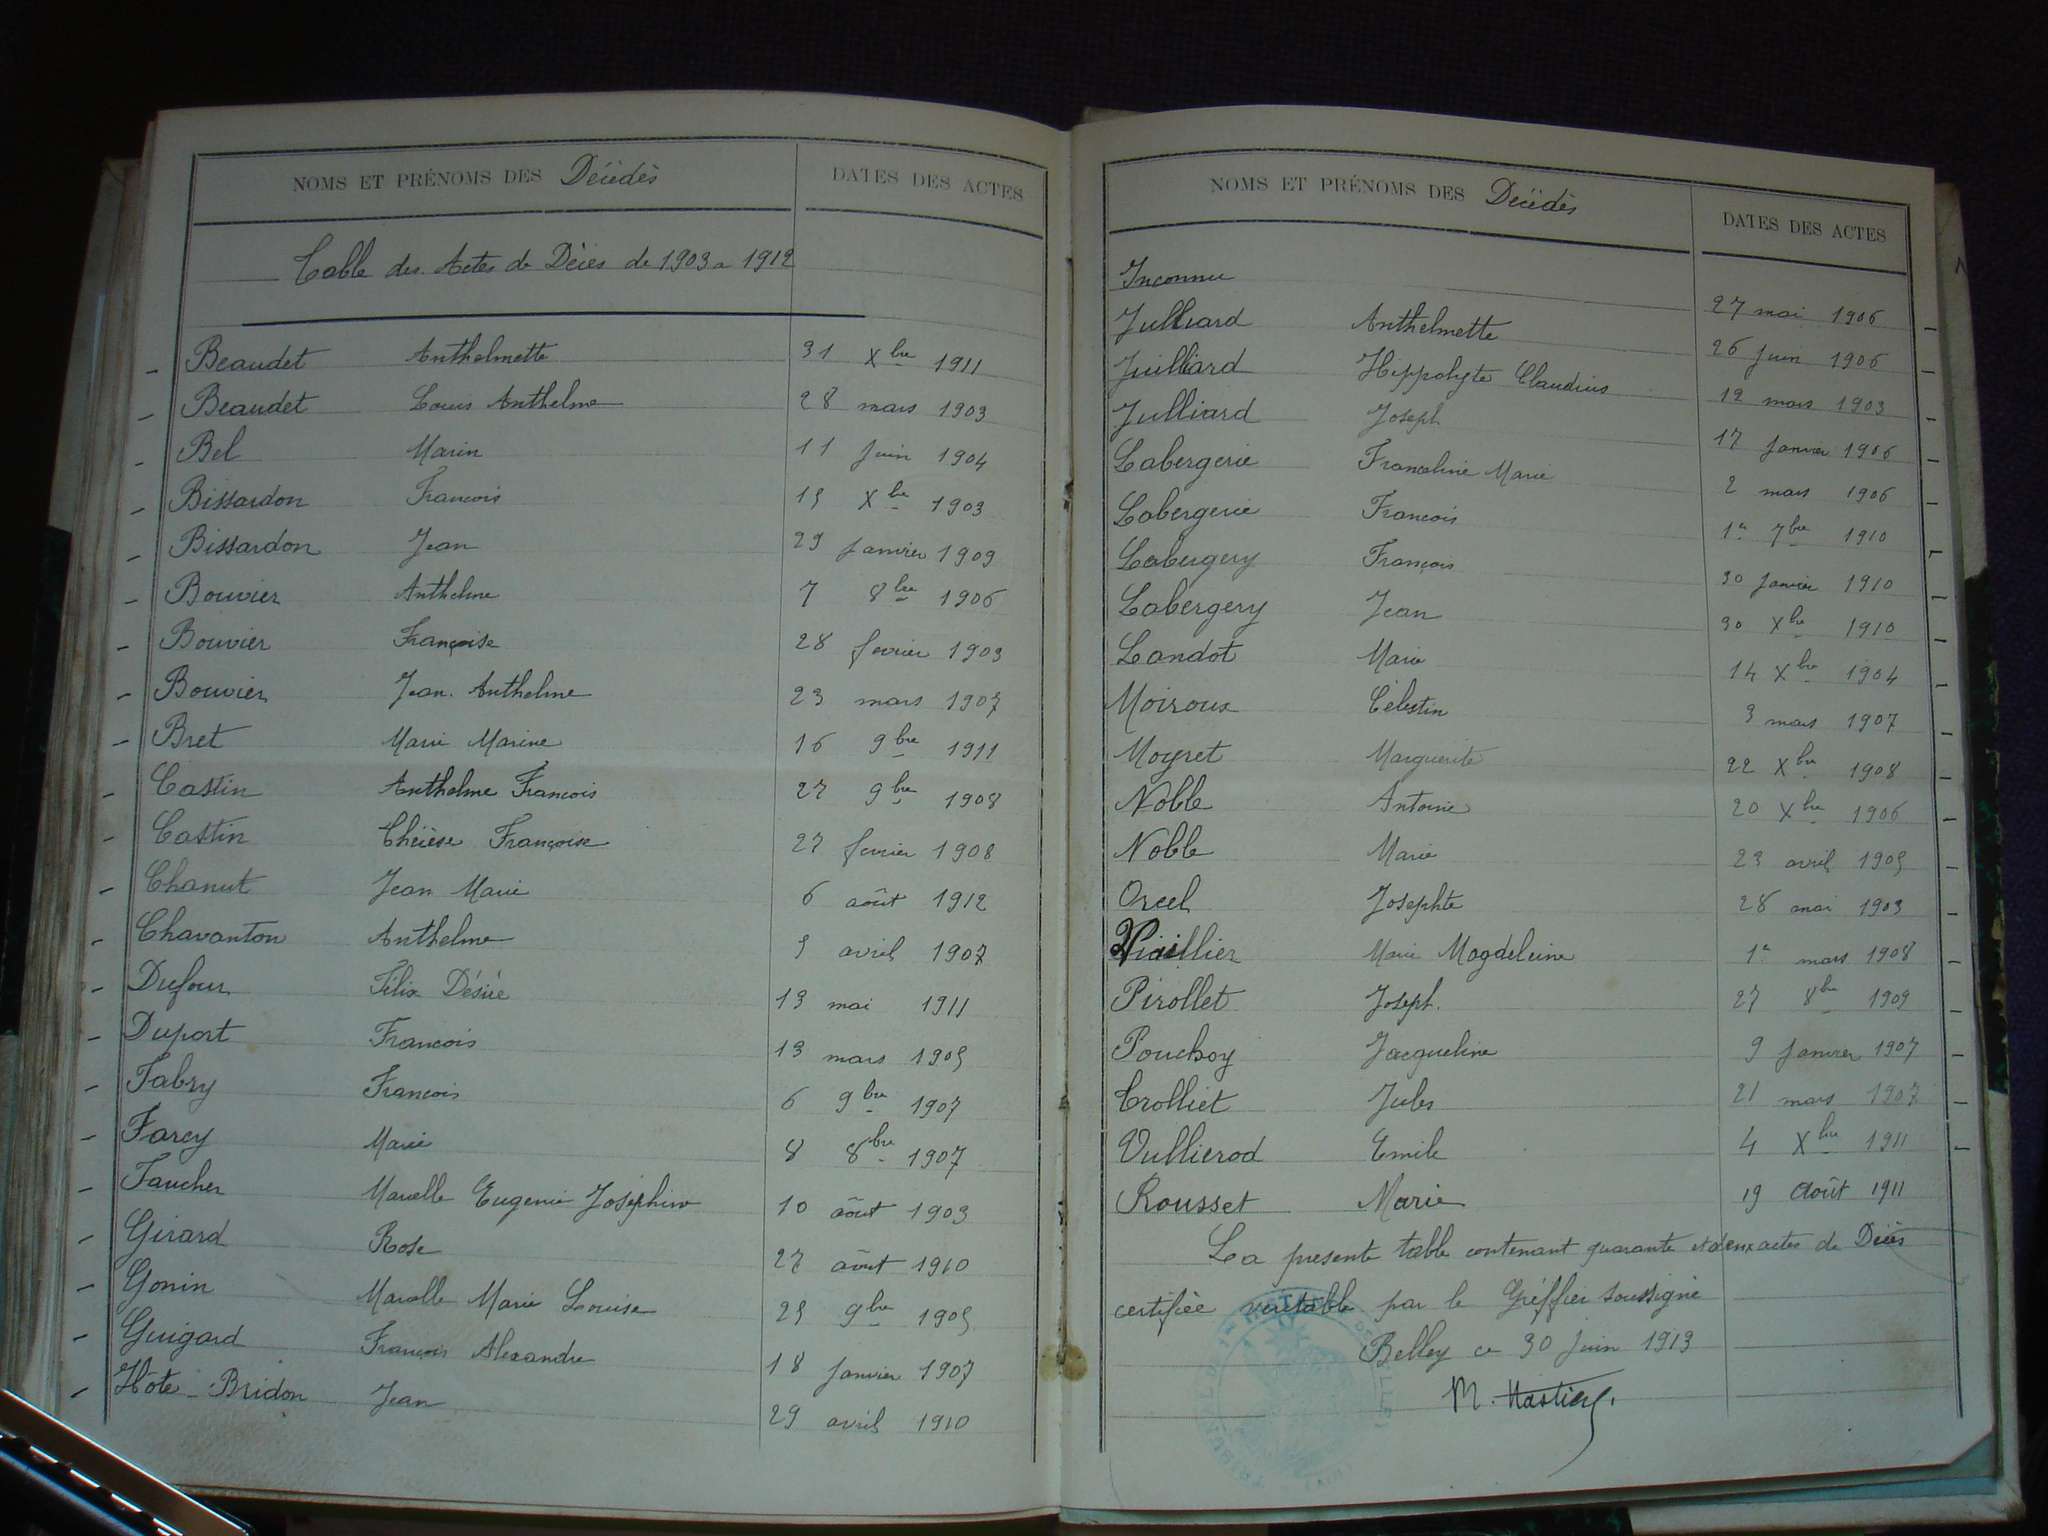 NOMS ET PRÉNOMS DES Décédés DATES DES ACTES
Table des Actes de Décès de 1903 a 1912
Beaudet Anthelmette 31 Xbre 1911
Beaudet Louis Anthelme 28 mars 1903
Bel Marin 11 Juin 1904
Bissardon Francois 15 Xbre 1903
Bissardon Jean 29 Janvier 1909
Bouvier Anthelme 7 8bre 1906
Bouvier Françoise 28 fevrier 1903
Bouvier Jean Anthelme 23 mars 1907
Bret Marie Marine 16 9bre 1911
Castin Anthelme Francois 27 9bre 1908
Castin Thérèse Françoise 27 fevrier 1908
Chanut Jean Marie 6 août 1912
Chavanton Anthelme 5 avril 1907
Dufour Félix Désiré 13 mai 1911
Duport Francois 13 mars 1905
Fabry Francois 6 9bre 1907
Farcy Marie 8 8bre 1907
Faucher Marcelle Eugenie Joséphine 10 août 1903
Girard Rose 27 août 1910
Gonin Marcelle Marie Louise 25 9bre 1905
Guigard François Alexandre 18 Janvier 1907
Hote-Bridon Jean 29 avril 1910
NOMS ET PRÉNOMS DES Décédés DATES DES ACTES
Inconnu 27 mai 1906
Julliard Anthelmette 26 Juin 1906
Juilliard Hippolyte Claudius 12 mars 1903
Julliard Joseph 17 Janvier 1906
Labergerie Franceline Marie 2 mars 1906
Labergerie Francois 1er 7bre 1910
Labergery François 30 Janvier 1910
Labergery Jean 30 Xbre 1910
Landot Marie 14 Xbre 1904
Moiroux Célestin 3 mars 1907
Moyret Marguerite 22 Xbre 1908
Noble Antoine 20 Xbre 1906
Noble Marie 23 avril 1905
Orcel Josephte 28 mai 1903
Marie Magdeleine 1er mars 1908
Pirollet Joseph 27 8bre 1909
Pouchoy Jacqueline 9 Janvier 1907
Trolliet Jules 21 mars 1907
Vullierod Emile 4 Xbre 1911
Rousset Marie 19 Août 1911
La presente table contenant quarante et deux actes de Décès
certifiée veritable par le Gréffier soussigné
Belley ce 30 Juin 1913